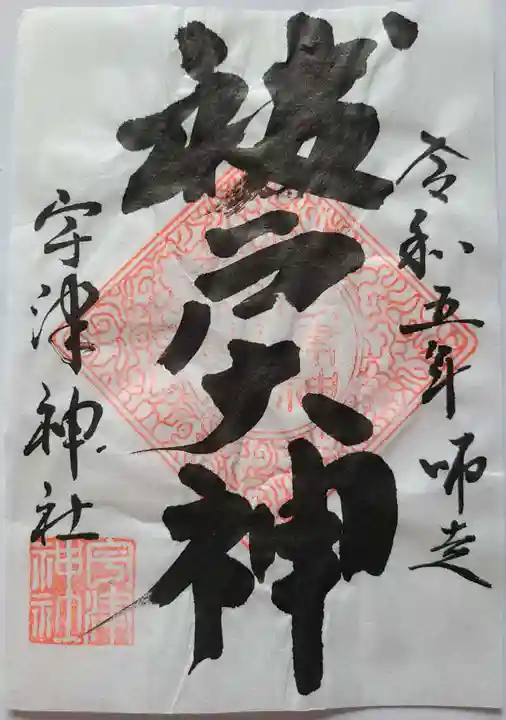 令和五年師走
祓戸大神
宇津神社
宇津
神社